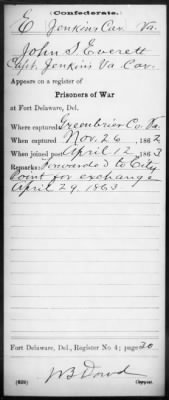 Confederate.
E Jenkins Cav. Va.
John S. Everett
Capt. Jenkins Va. Cav.
Appears on a register of
Prisoners of War
at Fort Delaware, Del.
Where captured Greenbrier Co. Va.
When captured Nov. 26, 1862
When joined post April 12, 1863
Remarks: Forwarded to City
Point for exchange
April 29, 1863
Fort Delaware, Del., Register No. 4; page 20
W B Dowd
Copyist.